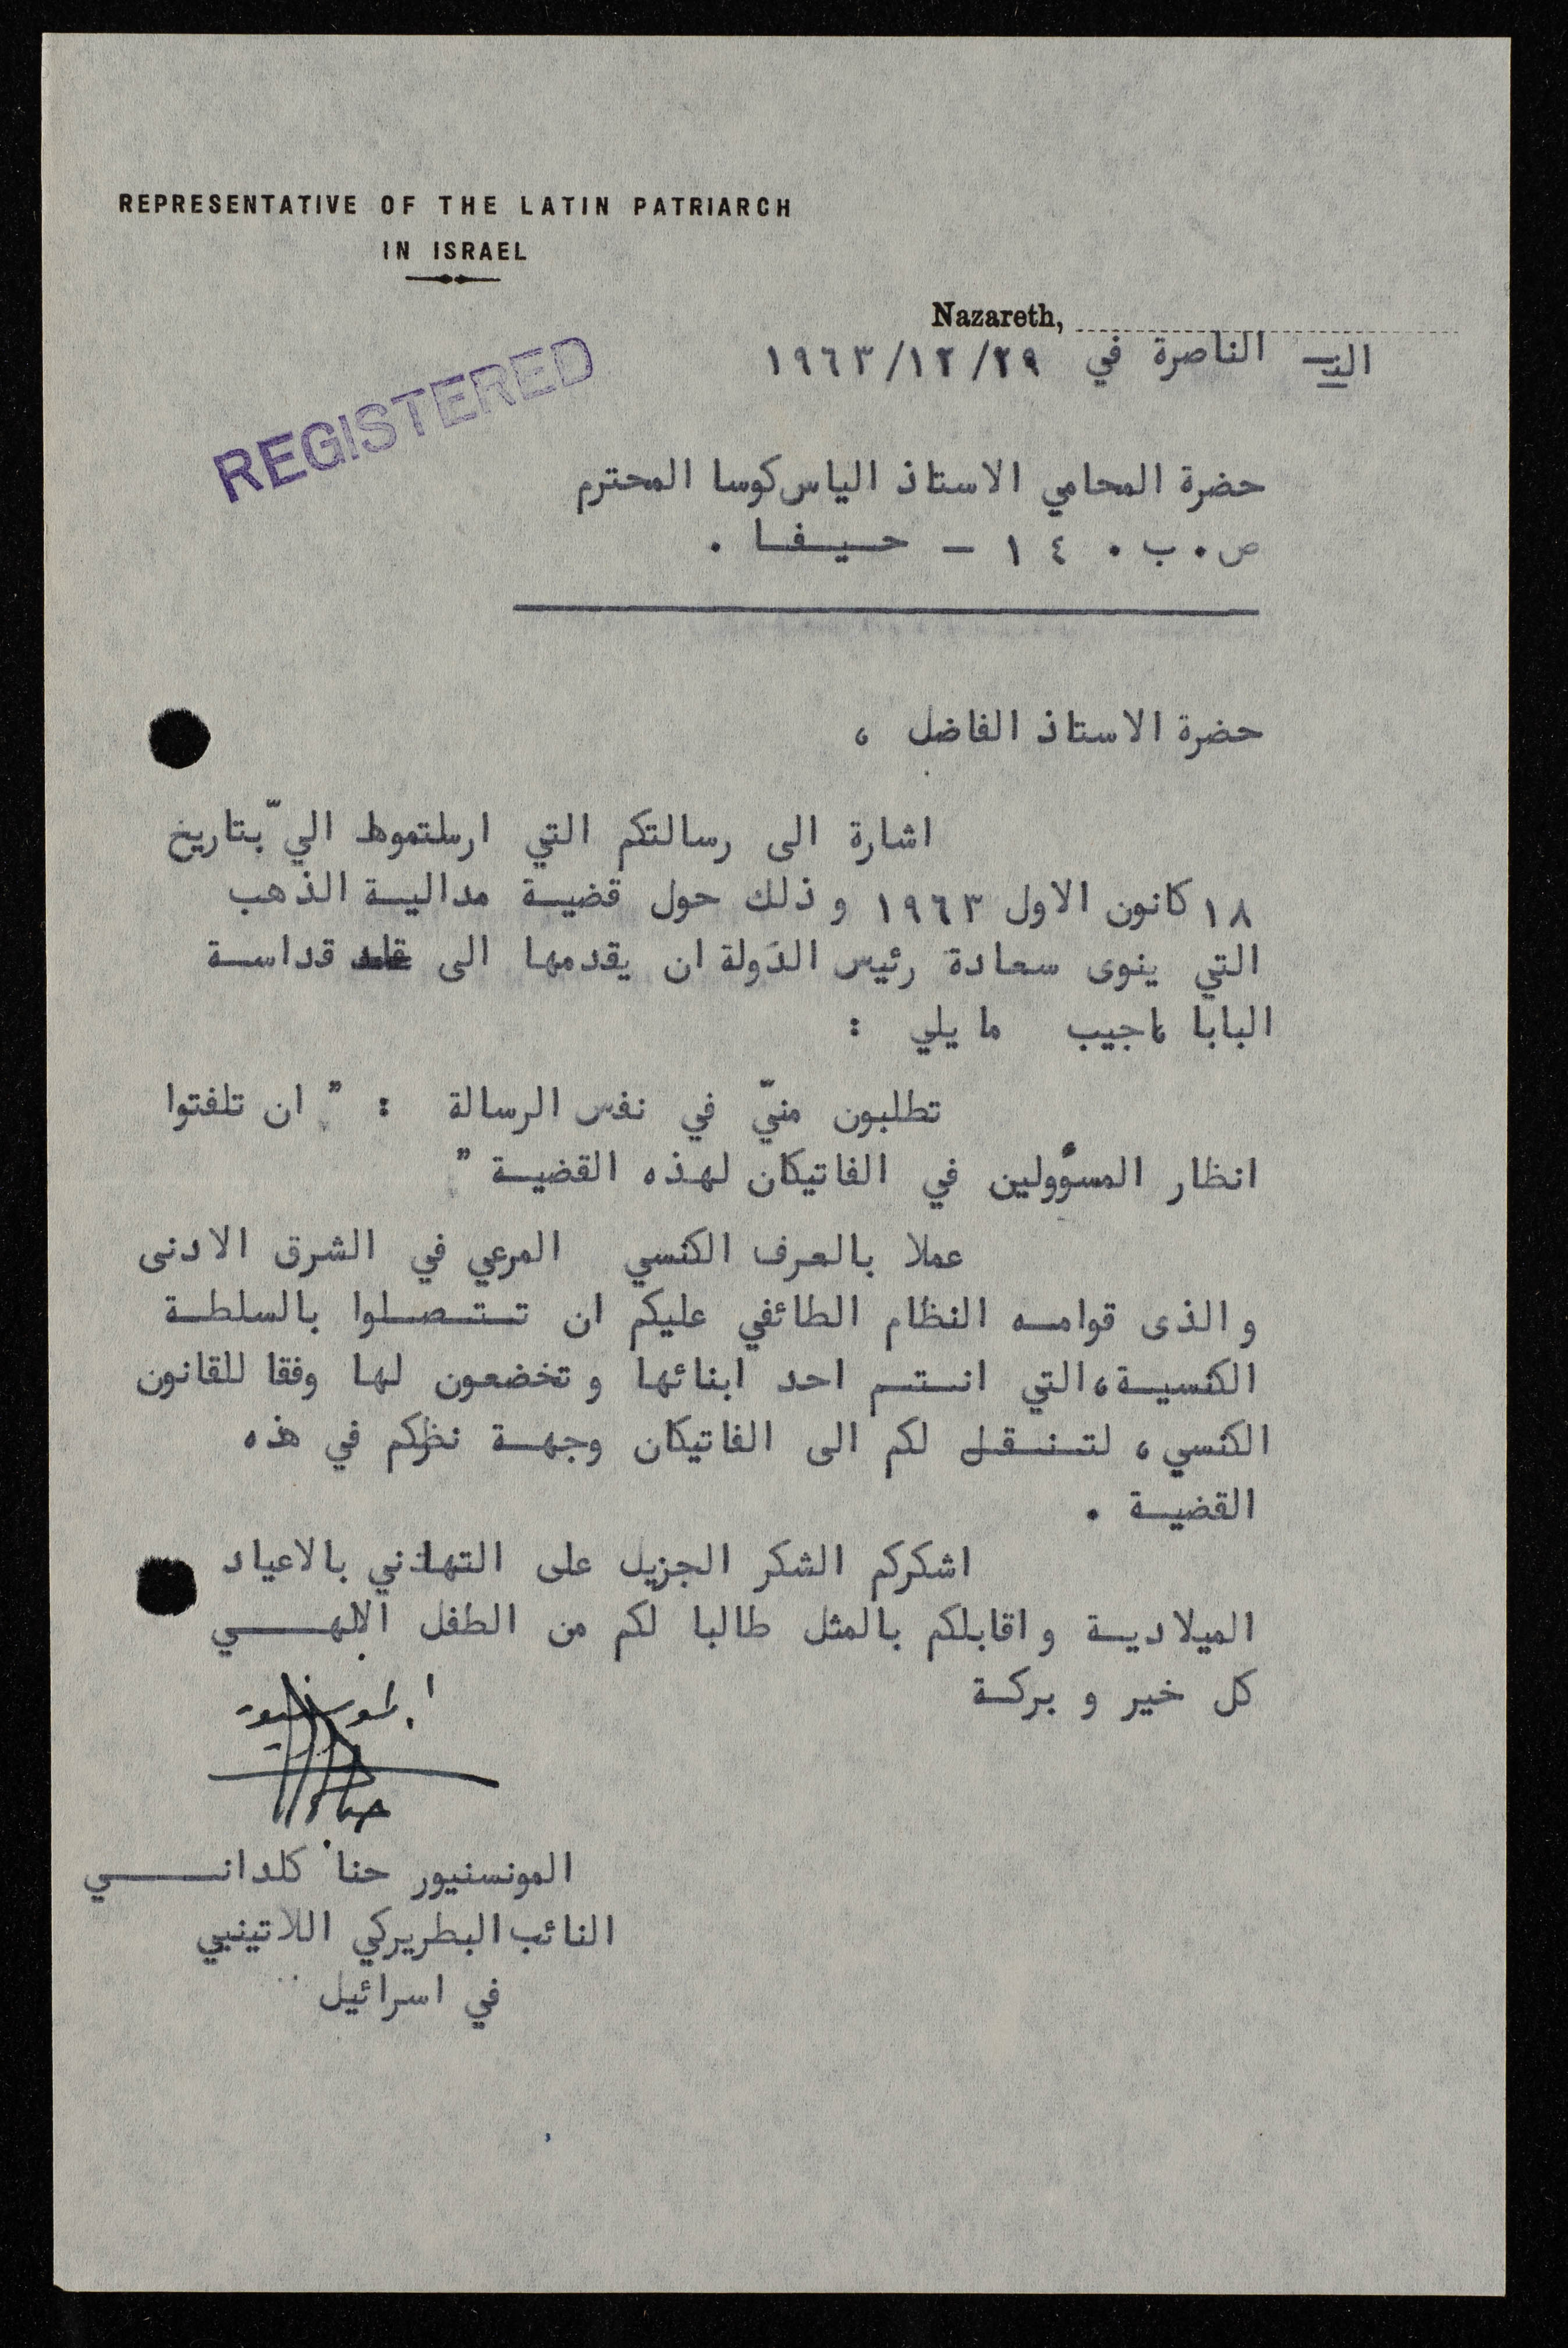 REPRESENTATIVE OF THE LATIN PATRIARCH
IN ISRAEL
Nazareth,
الناصرة في ١٩٦٣/١٢/٢٩
REGISTERED
حضرة المحامي الاستاذ الياس كوسا المحترم
ص٠ب٠ ١٤ – حيفا ٠
حضرة الاستاذ الفاضل ،
اشارة الى رسالتكم التي ارسلتموها اليّ بتاريخ
١٨ كانون الاول ١٩٦٣ وذلك حول قضية مدالية الذهب
التي ينوى سعادة رئيس الدولة ان يقدمها الى قداسة
البابا ،اجيب ما يلي :
تطلبون منيّ في نفس الرسالة : " ان تلفتوا
انظار المسؤولين في الفاتيكان لهذه القضية "
عملا بالعرف الكنسي المرعي في الشرق الادنى
والذى قوامه النظام الطائفي عليكم ان تتصلوا بالسلطة
الكنسية، التي انتم احد ابنائها وتخضعون لها وفقا للقانون
الكنسي، لتنقل لكم الى الفاتيكان وجهة نظركم في هذه
القضية ٠
اشكركم الشكر الجزيل على التهاني بالاعياد
الميلادية واقابلكم بالمثل طالبا لكم من الطفل الالهي
كل خير و بركة
المونسنيور حنا كلداني
النائب البطريركي اللاتيني
في اسرائيل